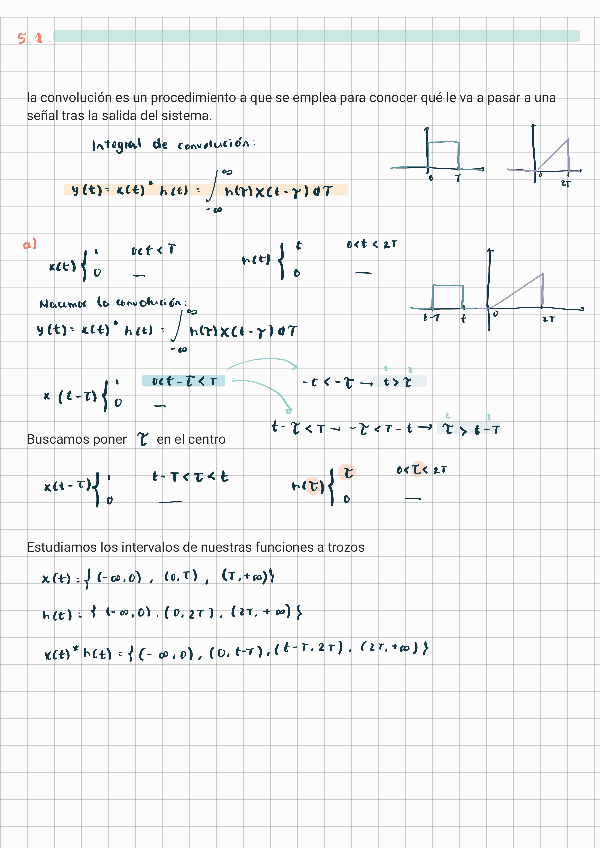 5.1.
la convolución es un procedimiento a que se emplea para conocer qué le va a pasar a una
señal tras la salida del sistema.
Integral de convolución:
y(t) = x(t) * h(t) = ∫_{-∞}^{∞} h(τ) x(t-τ) dτ
0 T
0 2T
a)
x(t) { 1 0<t<T
0 —
h(t) { t 0<t<2T
0 —
Hacemos la convolución:
y(t) = x(t) * h(t) = ∫_{-∞}^{∞} h(τ) x(t-τ) dτ
t-T t 0 2T
x(t-τ) { 1 0<t-τ<T
0 —
-t<-τ → t>τ
1 2
t-τ<T → -τ<T-t → τ>t-T
2 3
Buscamos poner τ en el centro
x(t-τ) { 1 t-T<τ<t
0 —
h(τ) { τ 0<τ<2T
0 —
Estudiamos los intervalos de nuestras funciones a trozos
x(t) = { (-∞,0), (0,T), (T,+∞) }
h(t) = { (-∞,0), (0,2T), (2T,+∞) }
x(t) * h(t) = { (-∞,0), (0,t-T), (t-T,2T), (2T,+∞) }